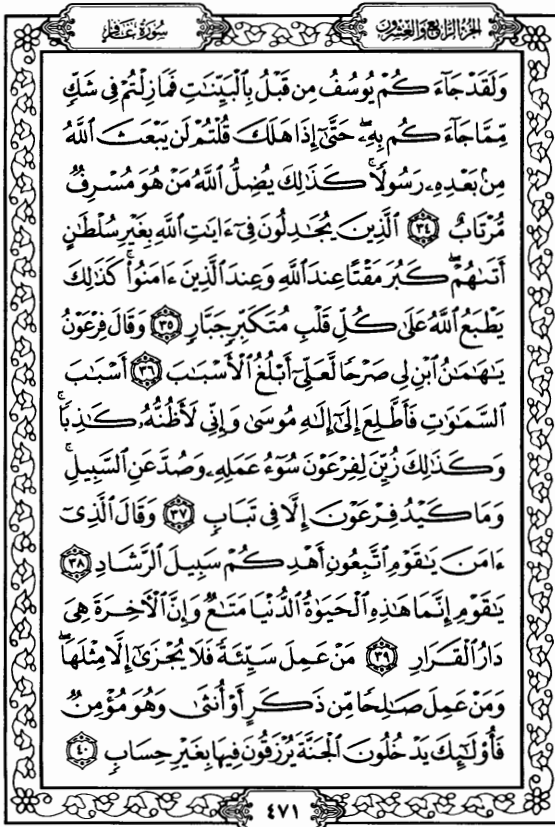 الجزء الرابع والعشرون
سورة غافر
وَلَقَدْ جَآءَكُمْ يُوسُفُ مِن قَبْلُ بِالْبَيِّنَٰتِ فَمَا زِلْتُمْ فِى شَكٍّ
مِّمَّا جَآءَكُم بِهِۦ ۖ حَتَّىٰٓ إِذَا هَلَكَ قُلْتُمْ لَن يَبْعَثَ ٱللَّهُ
مِنۢ بَعْدِهِۦ رَسُولًا ۚ كَذَٰلِكَ يُضِلُّ ٱللَّهُ مَنْ هُوَ مُسْرِفٌ
مُّرْتَابٌ ٣٤ ٱلَّذِينَ يُجَٰدِلُونَ فِىٓ ءَايَٰتِ ٱللَّهِ بِغَيْرِ سُلْطَٰنٍ
أَتَىٰهُمْ ۖ كَبُرَ مَقْتًا عِندَ ٱللَّهِ وَعِندَ ٱلَّذِينَ ءَامَنُوا۟ ۚ كَذَٰلِكَ
يَطْبَعُ ٱللَّهُ عَلَىٰ كُلِّ قَلْبِ مُتَكَبِّرٍ جَبَّارٍ ٣٥ وَقَالَ فِرْعَوْنُ
يَٰهَٰمَٰنُ ٱبْنِ لِى صَرْحًا لَّعَلِّىٓ أَبْلُغُ ٱلْأَسْبَٰبَ ٣٦ أَسْبَٰبَ
ٱلسَّمَٰوَٰتِ فَأَطَّلِعَ إِلَىٰٓ إِلَٰهِ مُوسَىٰ وَإِنِّى لَأَظُنُّهُۥ كَٰذِبًا ۚ
وَكَذَٰلِكَ زُيِّنَ لِفِرْعَوْنَ سُوٓءُ عَمَلِهِۦ وَصُدَّ عَنِ ٱلسَّبِيلِ ۚ
وَمَا كَيْدُ فِرْعَوْنَ إِلَّا فِى تَبَابٍ ٣٧ وَقَالَ ٱلَّذِىٓ
ءَامَنَ يَٰقَوْمِ ٱتَّبِعُونِ أَهْدِكُمْ سَبِيلَ ٱلرَّشَادِ ٣٨
يَٰقَوْمِ إِنَّمَا هَٰذِهِ ٱلْحَيَوٰةُ ٱلدُّنْيَا مَتَٰعٌ وَإِنَّ ٱلْءَاخِرَةَ هِىَ
دَارُ ٱلْقَرَارِ ٣٩ مَنْ عَمِلَ سَيِّئَةً فَلَا يُجْزَىٰٓ إِلَّا مِثْلَهَا ۖ
وَمَنْ عَمِلَ صَٰلِحًا مِّن ذَكَرٍ أَوْ أُنثَىٰ وَهُوَ مُؤْمِنٌ
فَأُو۟لَٰٓئِكَ يَدْخُلُونَ ٱلْجَنَّةَ يُرْزَقُونَ فِيهَا بِغَيْرِ حِسَابٍ ٤٠
٤٧١